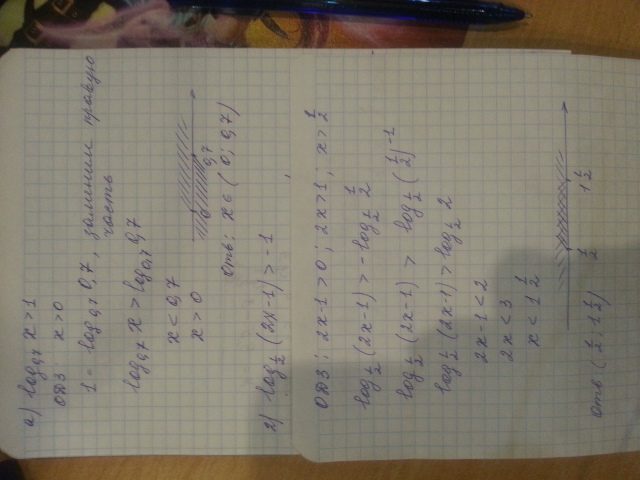 а) log₀,₇ x > 1
ОДЗ: x > 0
1 = log₀,₇ 0,7, заменим правую
часть
log₀,₇ x > log₀,₇ 0,7
x < 0,7
x > 0
0 0,7
Отв: x ∈ (0; 0,7)
2) log_½ (2x-1) > -1
ОДЗ: 2x-1 > 0; 2x > 1; x > ½
log_½ (2x-1) > -log_½ ½
log_½ (2x-1) > log_½ (½)⁻¹
log_½ (2x-1) > log_½ 2
2x-1 < 2
2x < 3
x < 1 ½
½ 1½
Отв (½; 1½)